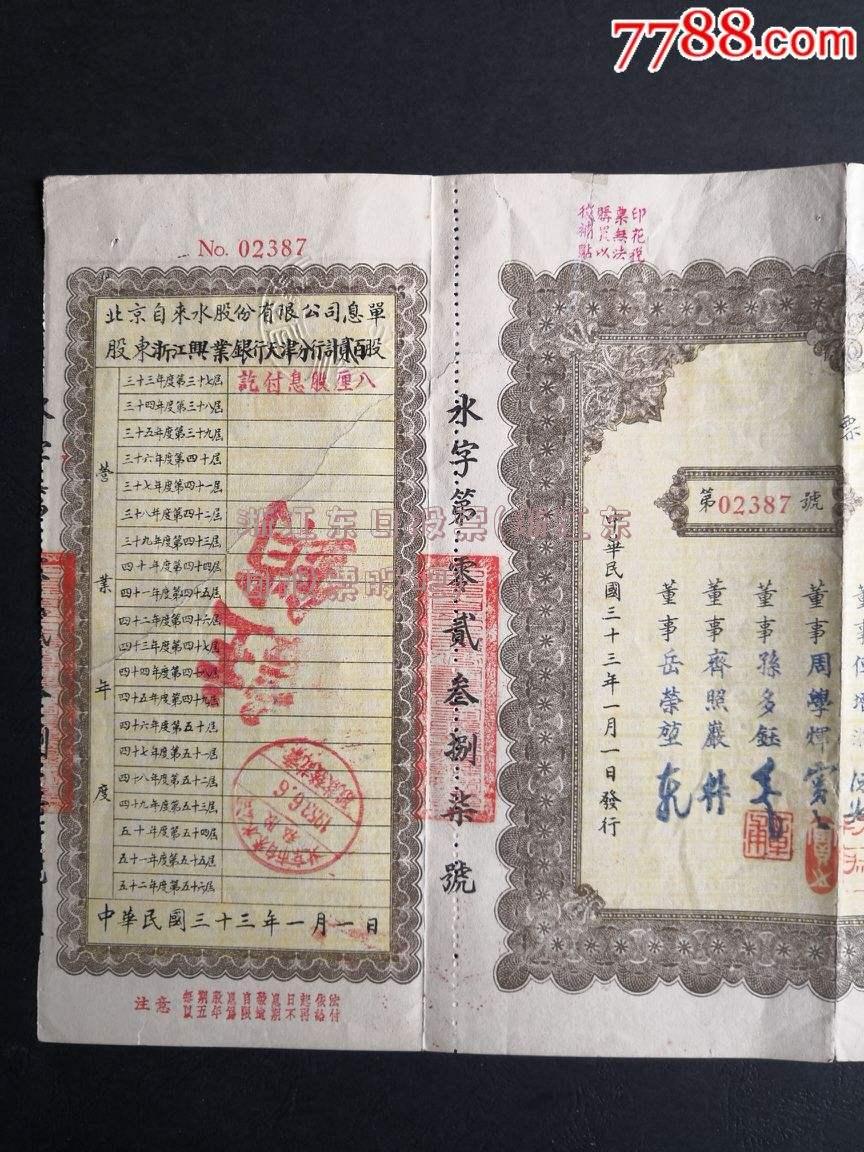 7788.com
No. 02387
北京自來水股份有限公司息單
股東浙江興業銀行天津分行計貳百股
營業年度
三十三年度第三十七屆
八厘股息付訖
三十四年度第三十八屆
三十五年度第三十九屆
三十六年度第四十屆
三十七年度第四十一屆
三十八年度第四十二屆
三十九年度第四十三屆
四十年度第四十四屆
四十一年度第四十五屆
四十二年度第四十六屆
四十三年度第四十七屆
四十四年度第四十八屆
四十五年度第四十九屆
四十六年度第五十屆
四十七年度第五十一屆
四十八年度第五十二屆
四十九年度第五十三屆
五十年度第五十四屆
五十一年度第五十五屆
五十二年度第五十六屆
中華民國三十三年一月一日
1952.6.6
注意
每期股息自發息日起依法
以五年為限逾期不再給付
水字第零貳叁捌柒號
印花稅
票無法
購買以
後補貼
第02387號
董事周學輝
董事孫多鈺
董事齊照巖
董事岳榮堃
中華民國三十三年一月一日發行
浙江东日股票(浙江东
日股票股吧)